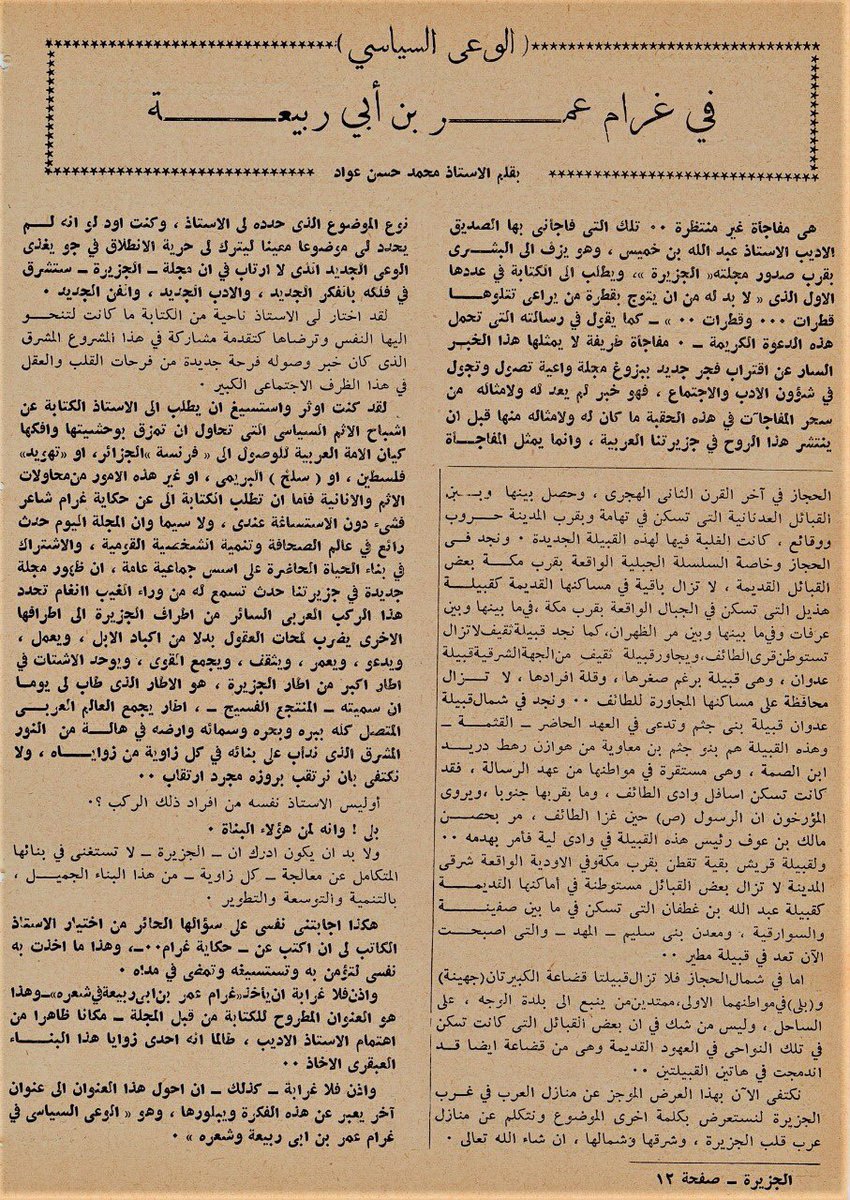 ( الوعى السياسي )
في غرام عمـــــر بن أبي ربيعـــــة
بقلم الاستاذ محمد حسن عواد
هى مفاجأة غير منتظرة ٠٠ تلك التى فاجأنى بها الصديق
الاديب الاستاذ عبد الله بن خميس ، وهو يزف الى البشرى
بقرب صدور مجلته« الجزيرة »، ويطلب الى الكتابة في عددها
الاول الذى « لا بد له من ان يتوج بقطرة من يراعى تتلوهــا
قطرات ٠٠٠ وقطرات ٠٠ » ــ كما يقول في رسالته التى تحمل
هذه الدعوة الكريمة ــ ٠ مفاجأة طريفة لا يمثلها هذا الخبـر
السار عن اقتراب فجر جديد ببزوغ مجلة واعية تصول وتجول
في شؤون الادب والاجتماع ، فهو خبر لم يعد له ولامثاله من
سحر المفاجآت في هذه الحقبة ما كان له ولامثاله منها قبل ان
ينتشر هذا الروح في جزيرتنا العربية ، وانما يمثل المفاجــأة
نوع الموضوع الذى حدده لى الاستاذ ، وكنت اود لو انه لــم
يحدد لى موضوعا معينا ليترك لى حرية الانطلاق في جو يغذى
الوعى الجديد الذى لا ارتاب في ان مجلة ــ الجزيرة ــ ستشرق
في فلكه بالفكر الجديد ، والادب الجديد ، والفن الجديد ٠
لقد اختار لى الاستاذ ناحية من الكتابة ما كانت لتنحــو
اليها النفس وترضاها كتقدمة مشاركة في هذا المشروع المشرق
الذى كان خبر وصوله فرحة جديدة من فرحات القلب والعقل
في هذا الظرف الاجتماعى الكبير ٠
لقد كنت اوثر واستسيغ ان يطلب الى الاستاذ الكتابة عن
اشباح الاثم السياسى التى تحاول ان تمزق بوحشيتها وافكها
كيان الامة العربية للوصول الى « فرنسة »الجزائر، او «تهويد»
فلسطين ، او ( سلخ ) البريمى ، او غير هذه الامور من محاولات
الاثم والانانية فأما ان تطلب الكتابة الى عن حكاية غرام شاعر
فشىء دون الاستساغة عندى ، ولا سيما وان المجلة اليوم حدث
رائع في عالم الصحافة وتنمية الشخصية القومية ، والاشتراك
في بناء الحياة الحاضرة على اسس جماعية عامة ، ان ظهور مجلة
جديدة في جزيرتنا حدث تسمع له من وراء الغيب اانغام تحدد
هذا الركب العربى السائر من اطراف الجزيرة الى اطرافها
الاخرى يضرب لمحات العقول بدلا من اكباد الابل ، ويعمل ،
ويدعو ، ويعمر ، ويثقف ، ويجمع القوى ، ويوحد الاشتات في
اطار اكبر من اطار الجزيرة ، هو الاطار الذى طاب لى يومـا
ان سميته ــ المنتجع الفسيح ــ ، اطار يجمع العالم العربـى
المتصل كله ببره وبحره وسمائه وارضه في هالــة من النور
المشرق الذى ندأب على بنائه في كل زاوية من زوايــاه ، ولا
نكتفى بان نرتقب بروزه مجرد ارتقاب ٠٠
أوليس الاستاذ نفسه من افراد ذلك الركب ؟٠
بلى ! وانه لمن هؤلاء البناة ٠
ولا بد ان يكون ادرك ان ــ الجزيرة ــ لا تستغنى في بنائها
المتكامل عن معالجة ــ كل زاوية ــ من هذا البناء الجميـل ،
بالتنمية والتوسعة والتطوير ٠
هكذا اجابتنى نفسى على سؤالها الحائر من اختيار الاستاذ
الكاتب لى ان اكتب عن ــ حكاية غرام٠٠ــ، وهذا ما اخذت به
نفسى لتؤمن به وتستسيغه وتمضى في مداه ٠
واذن فلا غرابة ان يأخذ«غرام عمر بن ابى ربيعة في شعره»ــوهذا
هو العنوان المطروح للكتابة من قبل المجلة ــ مكانا ظاهرا من
اهتمام الاستاذ الاديب ، طالما انه احدى زوايا هذا البنــاء
العبقرى الاخاذ ٠٠
واذن فلا غرابة ــ كذلك ــ ان احول هذا العنوان الى عنوان
آخر يعبر عن هذه الفكرة ويبلورها ، وهو « الوعى السياسى في
غرام عمر بن ابى ربيعة وشعره » ٠
الحجاز في آخر القرن الثانى الهجرى ، وحصل بينها وبيـن
القبائل العدنانية التى تسكن في تهامة وبقرب المدينة حــروب
ووقائع ، كانت الغلبة فيها لهذه القبيلة الجديدة ٠ ونجد فـى
الحجاز وخاصة السلسلة الجبلية الواقعة بقرب مكــة بعض
القبائل القديمة ، لا تزال باقية في مساكنها القديمة كقبيلــة
هذيل التى تسكن في الجبال الواقعة بقرب مكة ،في ما بينها وبين
عرفات وفي ما بينها وبين مر الظهران،كما نجد قبيلة ثقيف لاتزال
تستوطن قرى الطائف،ويجاور قبيلة ثقيف من الجهة الشرقية قبيلة
عدوان ، وهى قبيلة برغم صغرها ، وقلة افرادها ، لا تــزال
محافظة على مساكنها المجاورة للطائف ٠٠ ونجد في شمال قبيلة
عدوان قبيلة بنى جثم وتدعى في العهد الحاضر ــ القثمة ــ
وهذه القبيلة هم بنو جثم بن معاوية من هوازن رهط دريــد
ابن الصمة ، وهى مستقرة في مواطنها من عهد الرسالة ، فقد
كانت تسكن اسافل وادى الطائف ، وما بقربها جنوبا ،ويروى
المؤرخون ان الرسول (ص) حين غزا الطائف ، مر بحصــن
مالك بن عوف رئيس هذه القبيلة في وادى لية فأمر بهدمه ٠٠
ولقبيلة قريش بقية تقطن بقرب مكة وفي الاودية الواقعة شرقى
المدينة لا تزال بعض القبائل مستوطنة في أماكنها القديمــة
كقبيلة عبد الله بن غطفان التى تسكن في ما بين صفينــة
والسوارقية ، ومعدن بنى سليم ــ المهد ــ والتى اصبحت
الآن تعد في قبيلة مطير ٠٠
اما في شمال الحجاز فلا تزال قبيلتا قضاعة الكبيرتان(جهينة)
و(بلى)في مواطنهما الاولى،ممتدين من ينبع الى بلدة الوجه ، على
الساحل ، وليس من شك في ان بعض القبائل التى كانت تسكن
في تلك النواحى في العهود القديمة وهى من قضاعة ايضا قــد
اندمجت في هاتين القبيلتين ٠٠
نكتفى الآن بهذا العرض الموجز عن منازل العرب في غـرب
الجزيرة لنستعرض بكلمة اخرى الموضوع ونتكلم عن منازل
عرب قلب الجزيرة ، وشرقها وشمالها ، ان شاء الله تعالى ٠
الجزيرة ــ صفحة ١٢